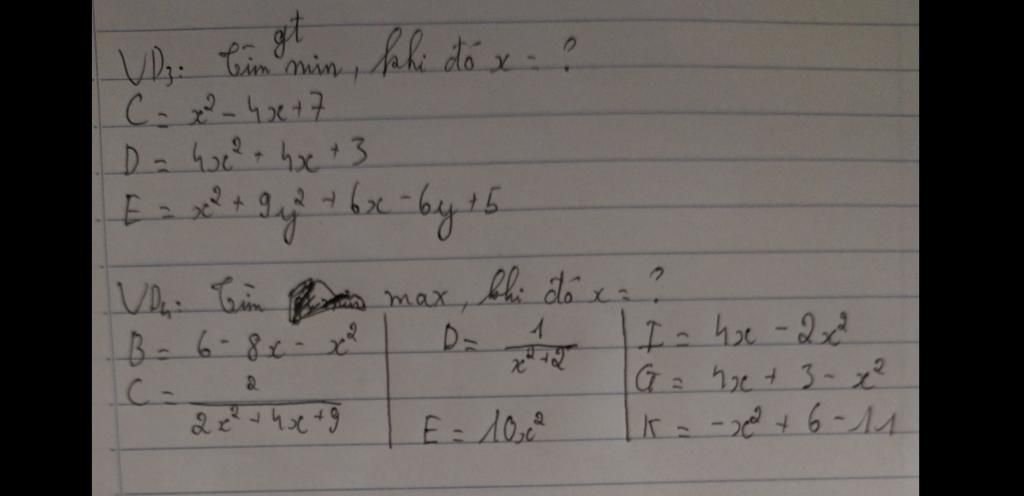 VD3: Tìm gt min, khi đó x = ?
C = x² - 4x + 7
D = 4x² + 4x + 3
E = x² + 9y² + 6x - 6y + 5
VD4: Tìm max, khi đó x = ?
B = 6 - 8x - x²
C = 2 / (2x² + 4x + 9)
D = 1 / (x² + 2)
E = 10x²
I = 4x - 2x²
G = 4x + 3 - x²
K = -x² + 6 - 11